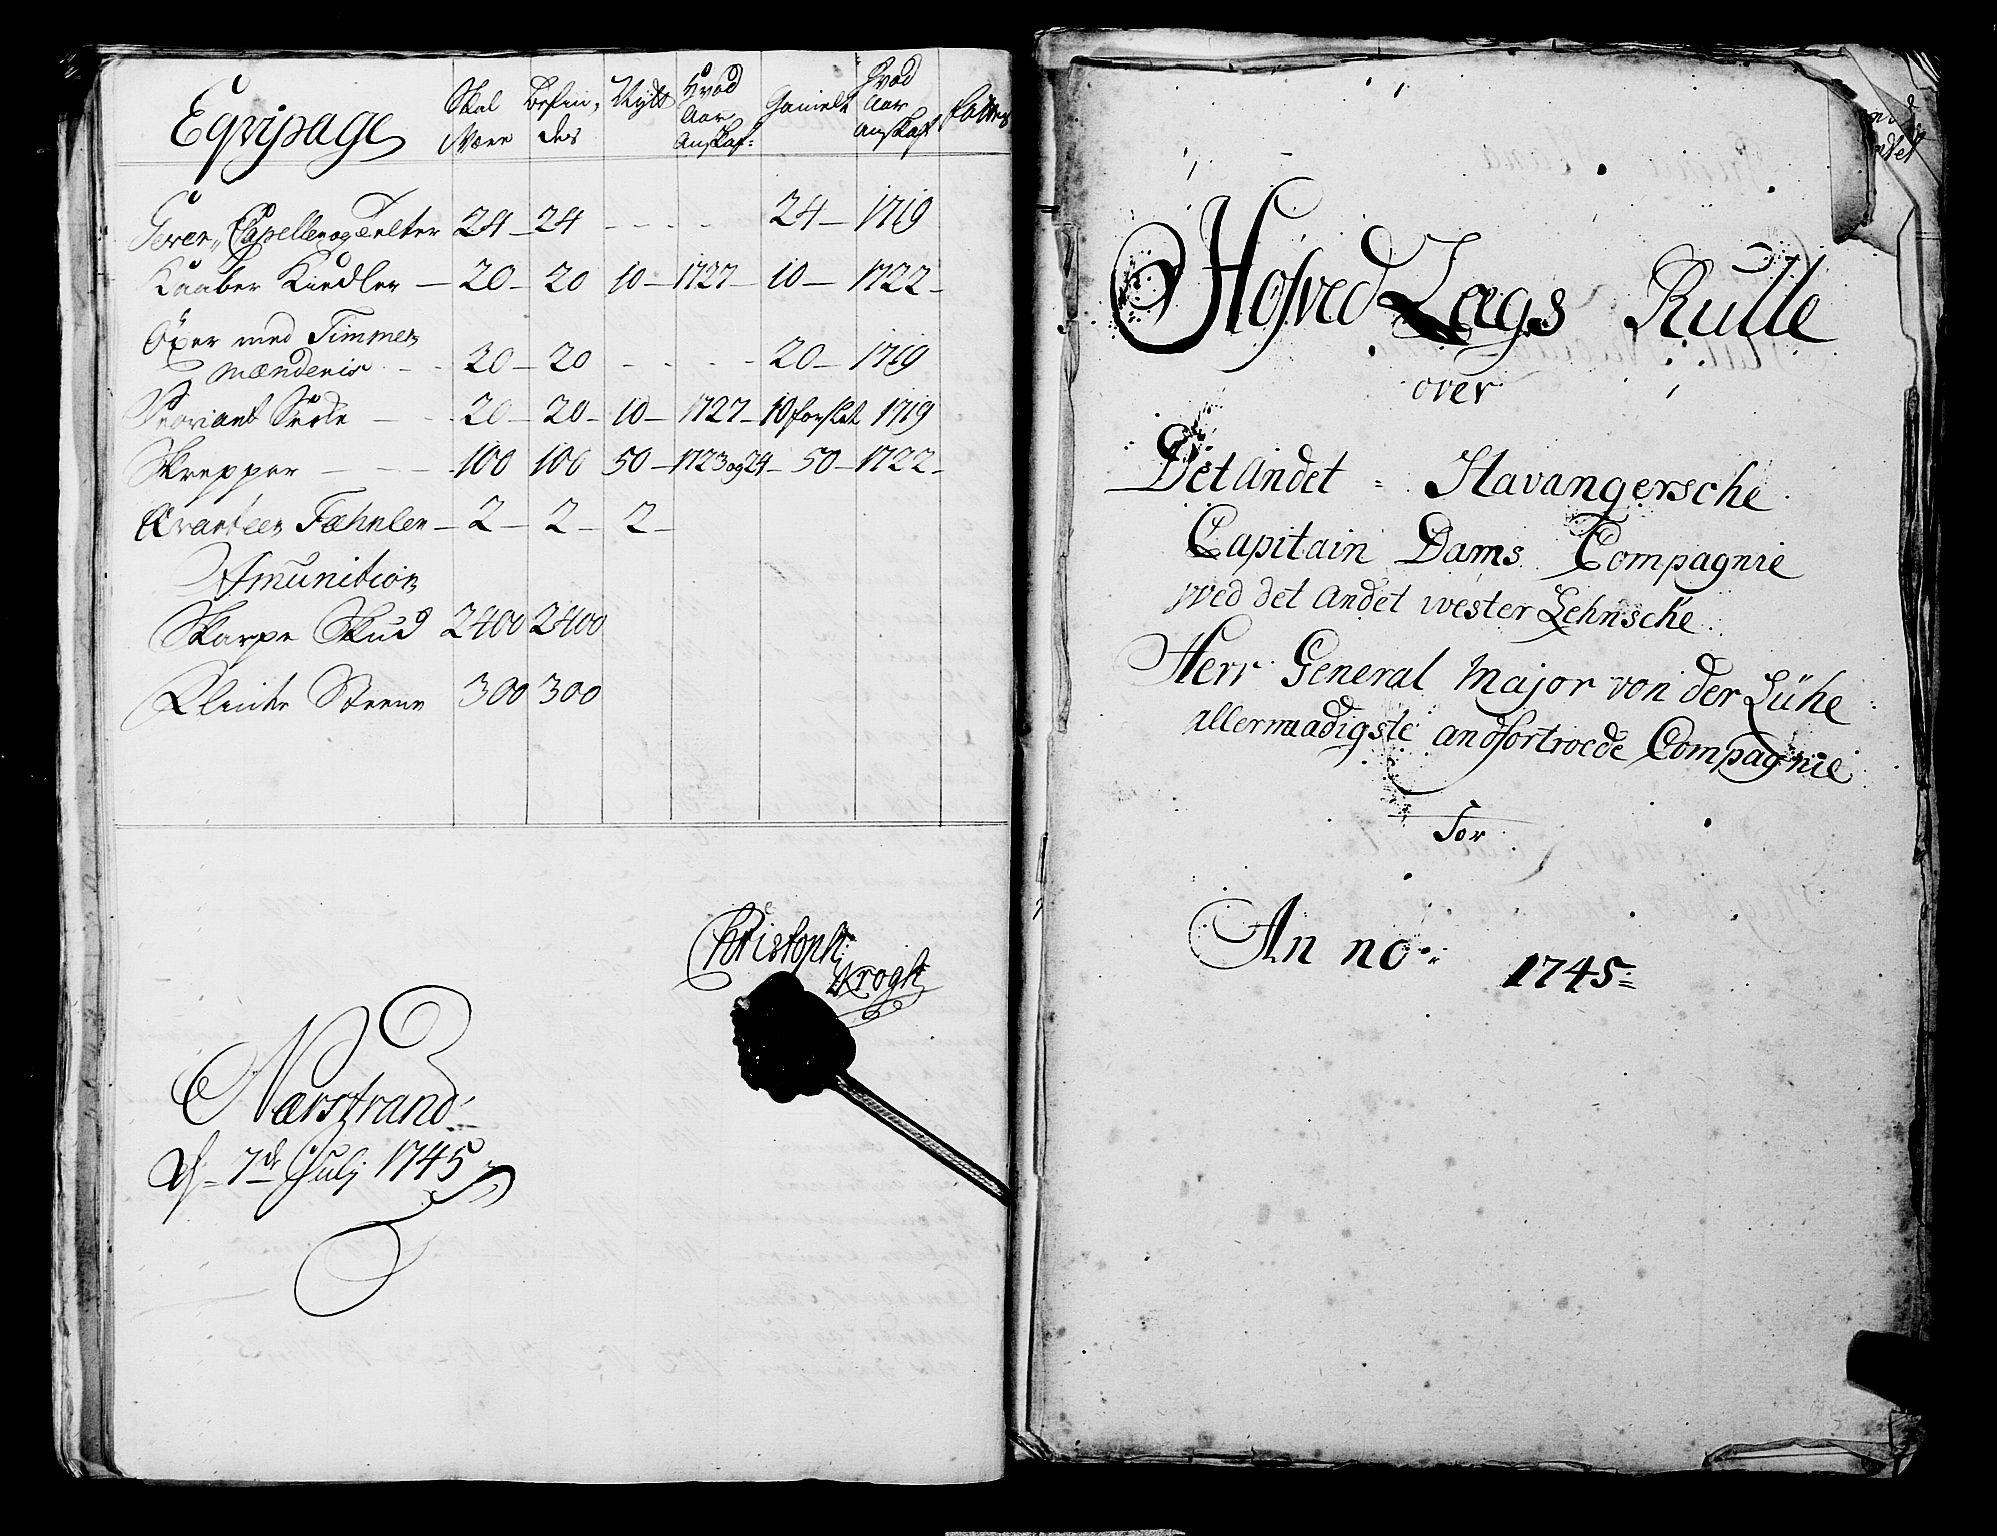 Eqvipage Skal Være Befin, des Nytt Hvad Aar Anskaf: Gamelt Hvad Aar anskaft Fattes
Gever,, Capeller og Telter 24 – 24 - - - - 24 – 1719
Kaaber Kiedler – 20 – 20 10 – 1727 – 10 – 1722 –
Öxer med Timmer
mændenis - - 20 – 20 - - - - 20 – 1719
Proviant Secke – – 20 – 20 – 10 – 1727 – 10 forslet 1719
Skrepper – – – 100 100 50 – 1723 og 24 – 50 – 1722 –
Qvarteer Fæhnler – 2 – 2 – 2 –
Amunition
Skarpe Skud 2400 2400
Flinte Steene 300 300
Christoph:
Krogh
Nærstrand
d. 7de Julj 1745
Hofved Lægs Rulle
over
Det Andet Stavangersche
Capitain Dams Compagnie
ved det Andet vester Lehnsche
Herr General Major von der Lühe
allernaadigste anfortroede Compagnie
For
An no 1745